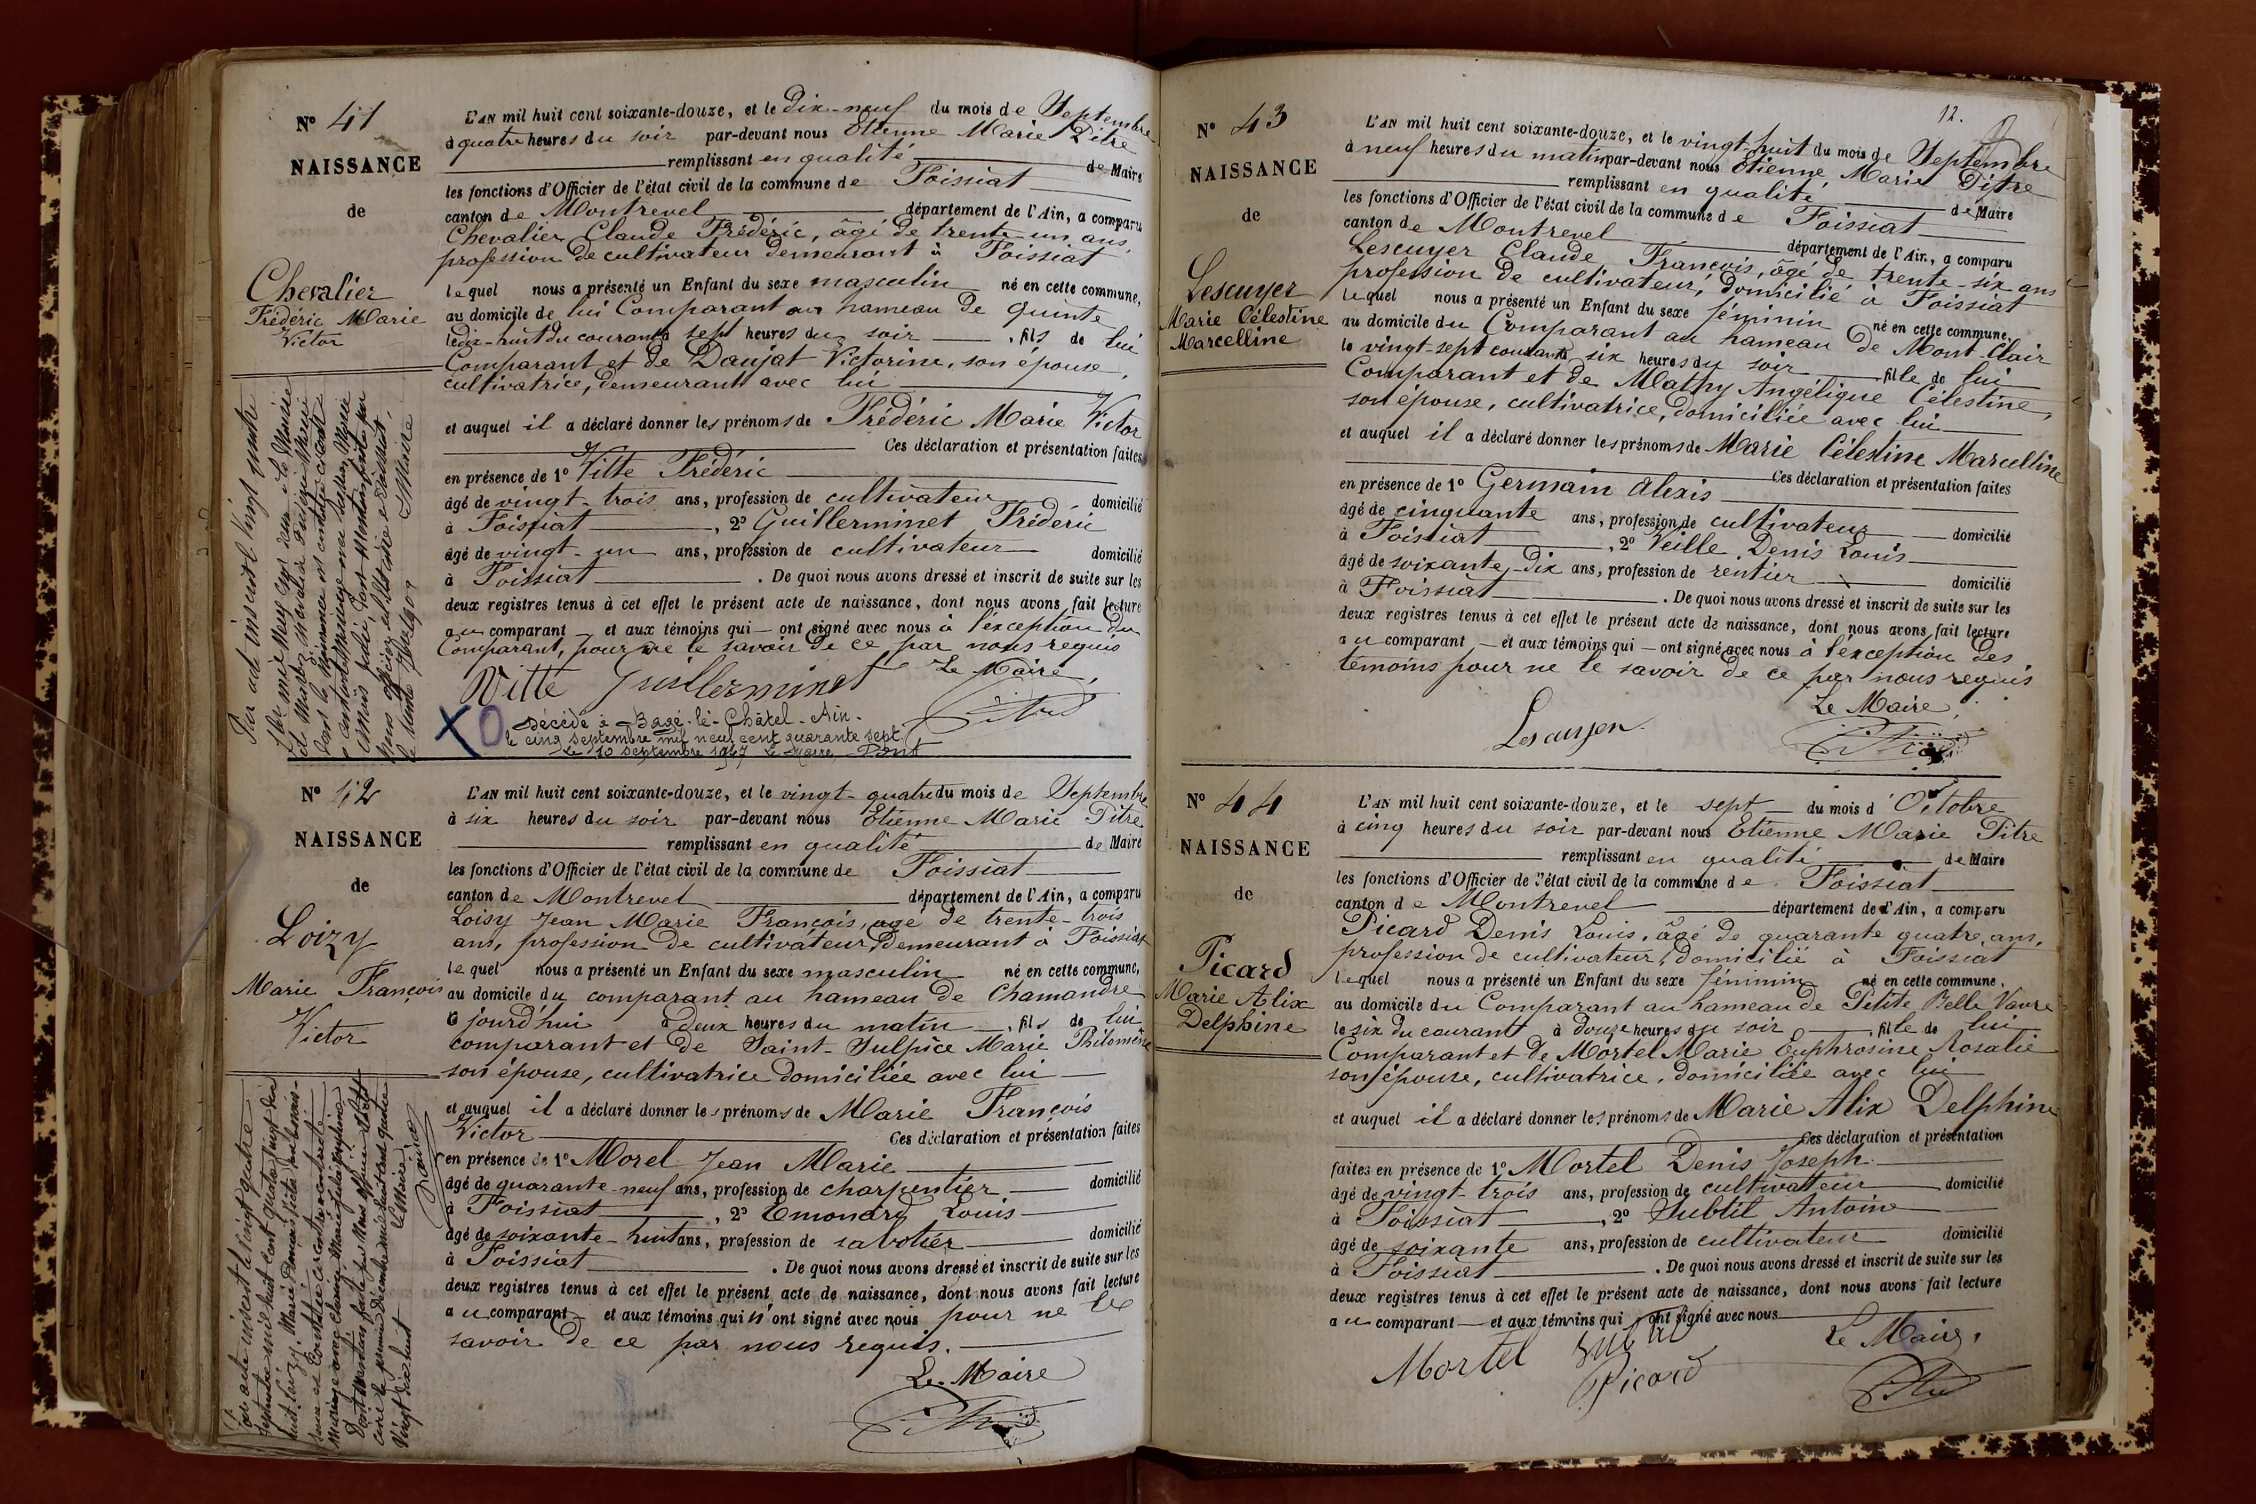 N° 41
NAISSANCE
de
Chevalier
Frédéric Marie
Victor
L'AN mil huit cent soixante-douze, et le dix-neuf du mois de Septembre
à quatre heures du soir par-devant nous Etienne Marie Pitre
remplissant en qualité de Maire
les fonctions d'Officier de l'état civil de la commune de Foissiat
canton de Montrevel département de l'Ain, a comparu
Chevalier Claude Frédéric, âgé de trente-un ans,
profession de cultivateur demeurant à Foissiat
lequel nous a présenté un Enfant du sexe masculin né en cette commune,
au domicile de lui Comparant au hameau de Quinte
le dix-huit du courant à sept heures du soir, fils de lui
Comparant et de Daujat Victorine, son épouse,
cultivatrice, demeurant avec lui
et auquel il a déclaré donner les prénoms de Frédéric Marie Victor
Ces déclaration et présentation faites
en présence de 1° Vitte Frédéric
âgé de vingt-trois ans, profession de cultivateur domicilié
à Foissiat, 2° Guillerminet Frédéric
âgé de vingt-un ans, profession de cultivateur domicilié
à Foissiat. De quoi nous avons dressé et inscrit de suite sur les
deux registres tenus à cet effet le présent acte de naissance, dont nous avons fait lecture
au comparant et aux témoins qui ont signé avec nous à l'exception du
Comparant, pour ne le savoir de ce par nous requis
Le Maire,
Vitte Guillerminet
Pitre
XO Décédé à Bagé-le-Châtel-Ain-
le cinq septembre mil neuf cent quarante sept.
Le 10 septembre 1947 Le Maire, Pont
Par acte inscrit le vingt quatre
N° 42
NAISSANCE
de
Loizy
Marie François
Victor
L'AN mil huit cent soixante-douze, et le vingt-quatre du mois de Septembre
à six heures du soir par-devant nous Etienne Marie Pitre
remplissant en qualité de Maire
les fonctions d'Officier de l'état civil de la commune de Foissiat
canton de Montrevel département de l'Ain, a comparu
Loisy Jean Marie François, agé de trente-trois
ans, profession de cultivateur, demeurant à Foissiat
lequel nous a présenté un Enfant du sexe masculin né en cette commune,
au domicile du comparant au hameau de Chamandre
jourd'hui à deux heures du matin, fils de lui
comparant et de Saint-Sulpice Marie Philomène
son épouse, cultivatrice domiciliée avec lui
et auquel il a déclaré donner les prénoms de Marie François
Victor Ces déclaration et présentation faites
en présence de 1° Morel Jean Marie
âgé de quarante-neuf ans, profession de charpentier domicilié
à Foissiat, 2° Emondry Louis
âgé de soixante-huit ans, profession de sabotier domicilié
à Foissiat. De quoi nous avons dressé et inscrit de suite sur les
deux registres tenus à cet effet le présent acte de naissance, dont nous avons fait lecture
au comparant et aux témoins qui n'ont signé avec nous pour ne le
savoir de ce par nous requis.
Le Maire
Pitre
12.
N° 43
NAISSANCE
de
Lescuyer
Marie Célestine
Marcelline
L'AN mil huit cent soixante-douze, et le vingt-huit du mois de Septembre
à neuf heures du matin par-devant nous Etienne Marie Pitre
remplissant en qualité de Maire
les fonctions d'Officier de l'état civil de la commune de Foissiat
canton de Montrevel département de l'Ain, a comparu
Lescuyer Claude François, âgé de trente-six ans
profession de cultivateur, domicilié à Foissiat
lequel nous a présenté un Enfant du sexe féminin né en cette commune,
au domicile du Comparant au hameau de Mont-Clair
le vingt-sept courant à six heures du soir fille de lui
Comparant et de Mathy Angélique Célestine,
son épouse, cultivatrice, domiciliée avec lui
et auquel il a déclaré donner les prénoms de Marie Célestine Marcelline
Ces déclaration et présentation faites
en présence de 1° Germain Alexis
âgé de cinquante ans, profession de cultivateur domicilié
à Foissiat, 2° Veille Denis Louis
âgé de soixante-dix ans, profession de rentier domicilié
à Foissiat. De quoi nous avons dressé et inscrit de suite sur les
deux registres tenus à cet effet le présent acte de naissance, dont nous avons fait lecture
au comparant et aux témoins qui ont signé avec nous à l'exception des
témoins pour ne le savoir de ce par nous requis.
Le Maire,
Lescuyer
Pitre
N° 44
NAISSANCE
de
Picard
Marie Alix
Delphine
L'AN mil huit cent soixante-douze, et le sept du mois d'Octobre
à cinq heures du soir par-devant nous Etienne Marie Pitre
remplissant en qualité de Maire
les fonctions d'Officier de l'état civil de la commune de Foissiat
canton de Montrevel département de l'Ain, a comparu
Picard Denis Louis, âgé de quarante quatre ans,
profession de cultivateur, domicilié à Foissiat
lequel nous a présenté un Enfant du sexe féminin né en cette commune,
au domicile du Comparant au hameau de Petite Belle Vavre
le six du courant à douze heures du soir, fille de lui
Comparant et de Mortel Marie Euphrosine Rosalie
son épouse, cultivatrice, domiciliée avec lui
et auquel il a déclaré donner les prénoms de Marie Alix Delphine
Ces déclaration et présentation
faites en présence de 1° Mortel Denis Joseph
âgé de vingt-trois ans, profession de cultivateur domicilié
à Foissiat, 2° Subtil Antoine
âgé de soixante ans, profession de cultivateur domicilié
à Foissiat. De quoi nous avons dressé et inscrit de suite sur les
deux registres tenus à cet effet le présent acte de naissance, dont nous avons fait lecture
au comparant et aux témoins qui ont signé avec nous
Le Maire,
Mortel Subtil
Picard
Pitre